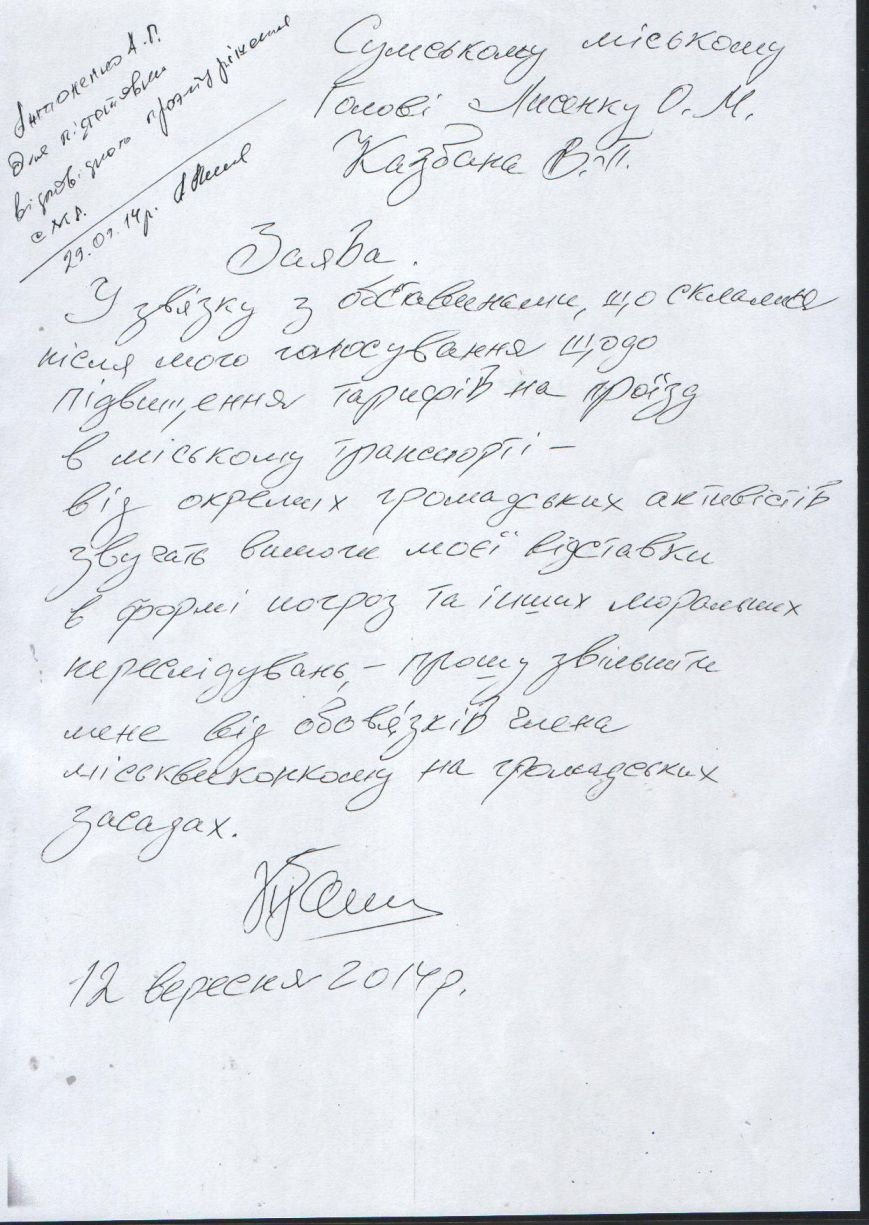 Антоненко А.Г.
Для підготовки
відповідного розпорядження
29.09.14р.
Сумському міському
Голові Лисенку О. М.
Казбана В.П.
Заява.
У зв'язку з обставинами, що склалися
після мого голосування щодо
підвищення тарифів на проїзд
в міському транспорті –
від окремих громадських активістів
звучать вимоги моєї відставки
в формі погроз та інших моральних
переслідувань, – прошу звільнити
мене від обов'язків члена
міськвиконкому на громадських
засадах.
12 вересня 2014р.